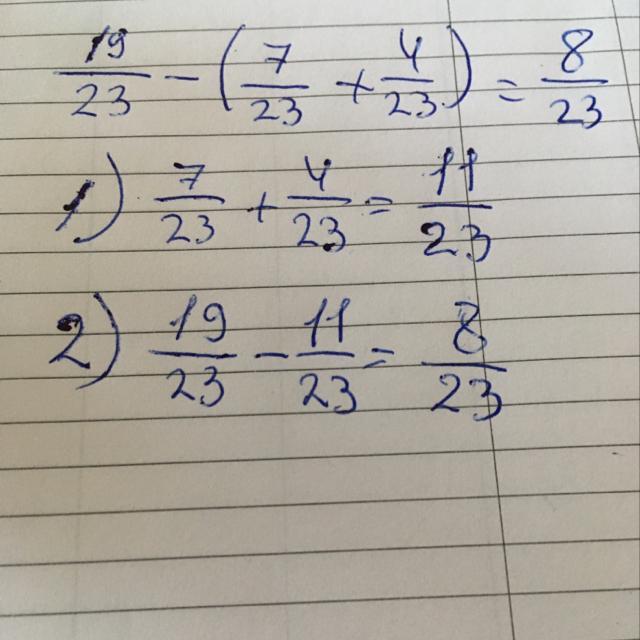 19/23 - (7/23 + 4/23) = 8/23
1) 7/23 + 4/23 = 11/23
2) 19/23 - 11/23 = 8/23